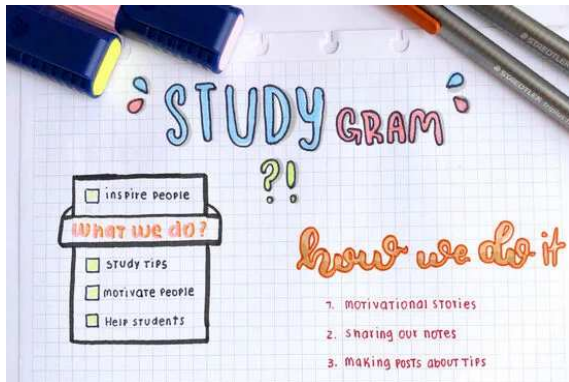 STUDY GRAM
?!
inspire people
What we do?
STUDY TIPS
motivate people
Help students
how we do it
1. motivational stories
2. sharing our notes
3. making posts about tips
STAEDTLER
STAEDTLER